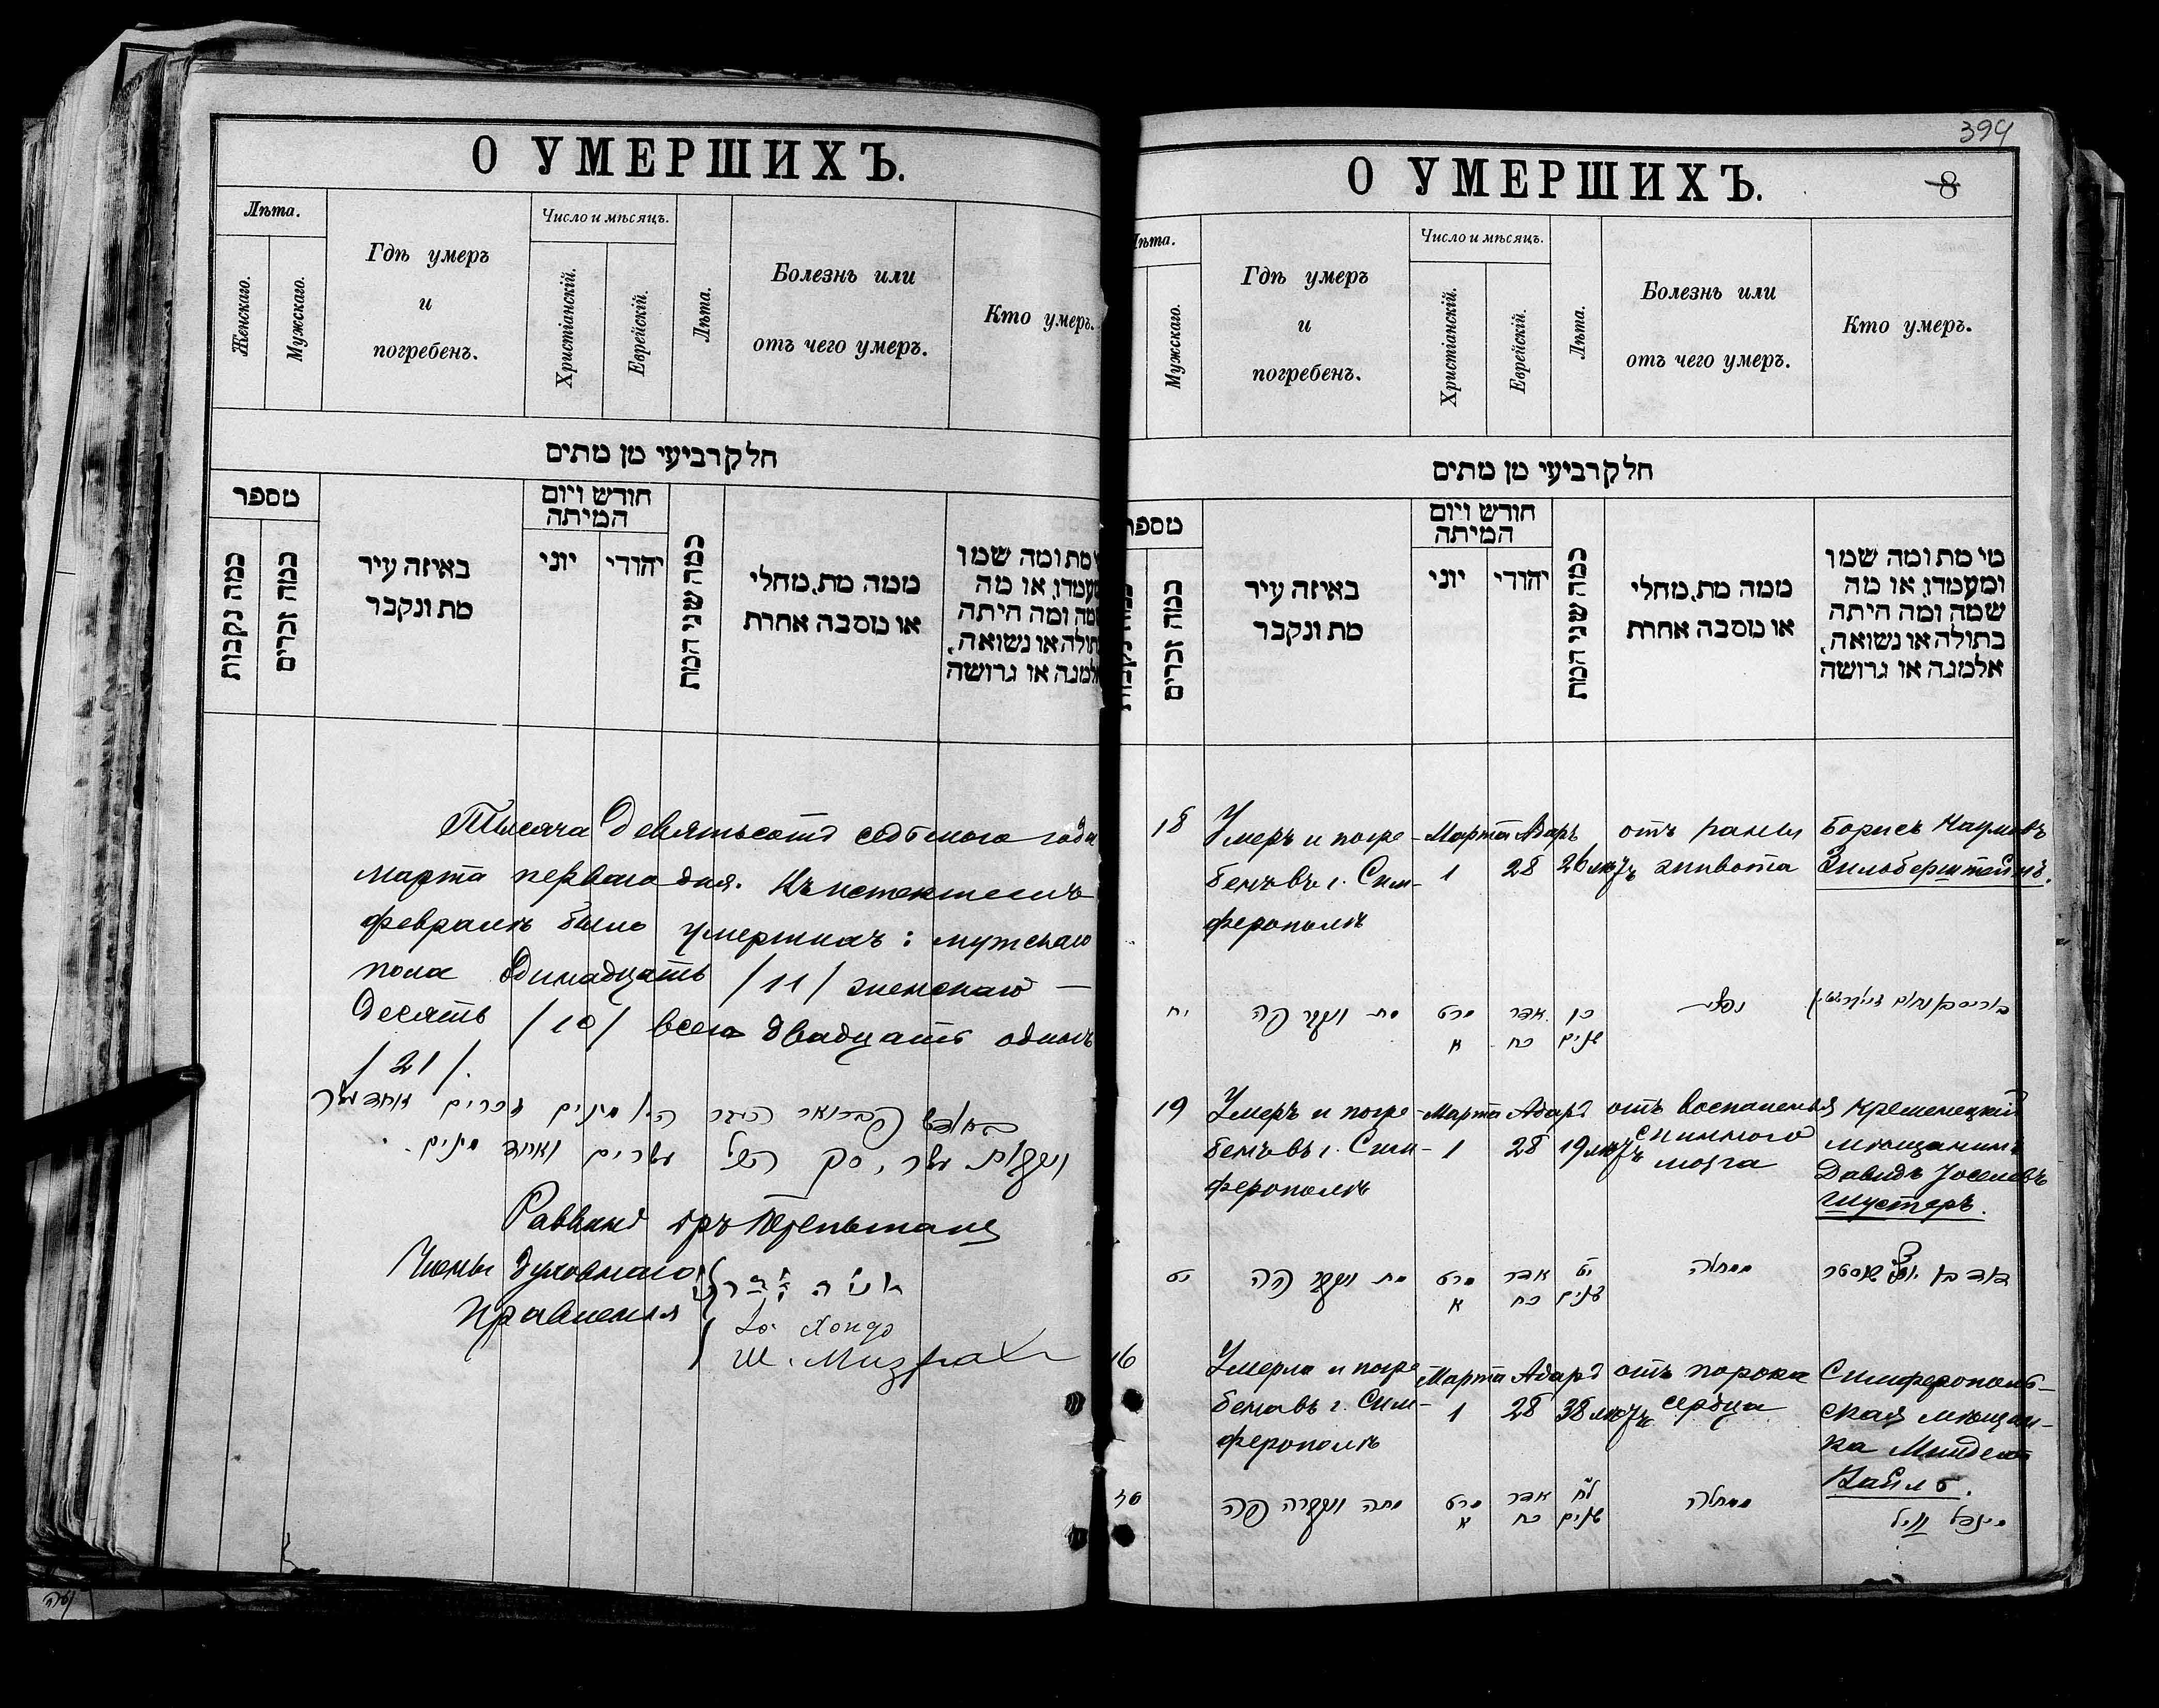 О УМЕРШИХЪ.
Лѣта.
Женскаго.
Мужскаго.
Гдѣ умеръ
и
погребенъ.
Число и мѣсяцъ.
Христіанскій.
Еврейскій.
Лѣта.
Болезнь или
отъ чего умеръ.
Кто умеръ.
חלק רביעי מן מתים
מספר
כמה נקבות
כמה זכרים
באיזה עיר
מת ונקבר
חודש ויום
המיתה
יוני
יהודי
כמה שני המת
ממה מת, מחלי
או מסבה אחרת
מת ומה שמו
או מה
ומה היתה
או נשואה,
או גרושה
Тысяча девятьсотъ седьмого года
марта перваго дня. Въ истекшемъ
февралѣ было умершихъ: мужскаго
пола одинадцать /11/ женскаго —
десять /10/ всего двадцать одинъ
/21/.
Раввинъ
Члены Духовнаго
Правленія
Хондо
Ш. Мизрахи
394
О УМЕРШИХЪ.
8
Лѣта.
Мужскаго.
Гдѣ умеръ
и
погребенъ.
Число и мѣсяцъ.
Христіанскій.
Еврейскій.
Лѣта.
Болезнь или
отъ чего умеръ.
Кто умеръ.
חלק רביעי מן מתים
מספר
כמה זכרים
באיזה עיר
מת ונקבר
חודש ויום
המיתה
יוני
יהודי
כמה שני המת
ממה מת, מחלי
או מסבה אחרת
מי מת ומה שמו
ומעמדו, או מה
שמה ומה היתה
בתולה או נשואה,
אלמנה או גרושה
18 Умеръ и погре- Марта Адаръ отъ раны Борисъ Наумовъ
бенъ въ г. Сим- 1 28 26 лѣтъ живота Зильберштейнъ.
ферополѣ
יח מת ונקבר פה מרט אדר כו
א כח שנים
19 Умеръ и погре- Марта Адаръ отъ воспаленія Кременецкій
бенъ въ г. Сим- 1 28 19 лѣтъ спинного мѣщанинъ
ферополѣ мозга Давидъ Іоселевъ
Шустеръ.
יט מת ונקבר פה מרט אדר יט ממחלה דוד בן שוסטר
א כח שנים
16 Умерла и погре- Марта Адаръ отъ порока Симферополь-
бена въ г. Сим- 1 28 38 лѣтъ сердца ская мѣщан-
ферополѣ ка Миндель
Вайль.
מתה ונקברה פה מרט אדר לח ממחלה
א כח שנים
מינדל ווייל